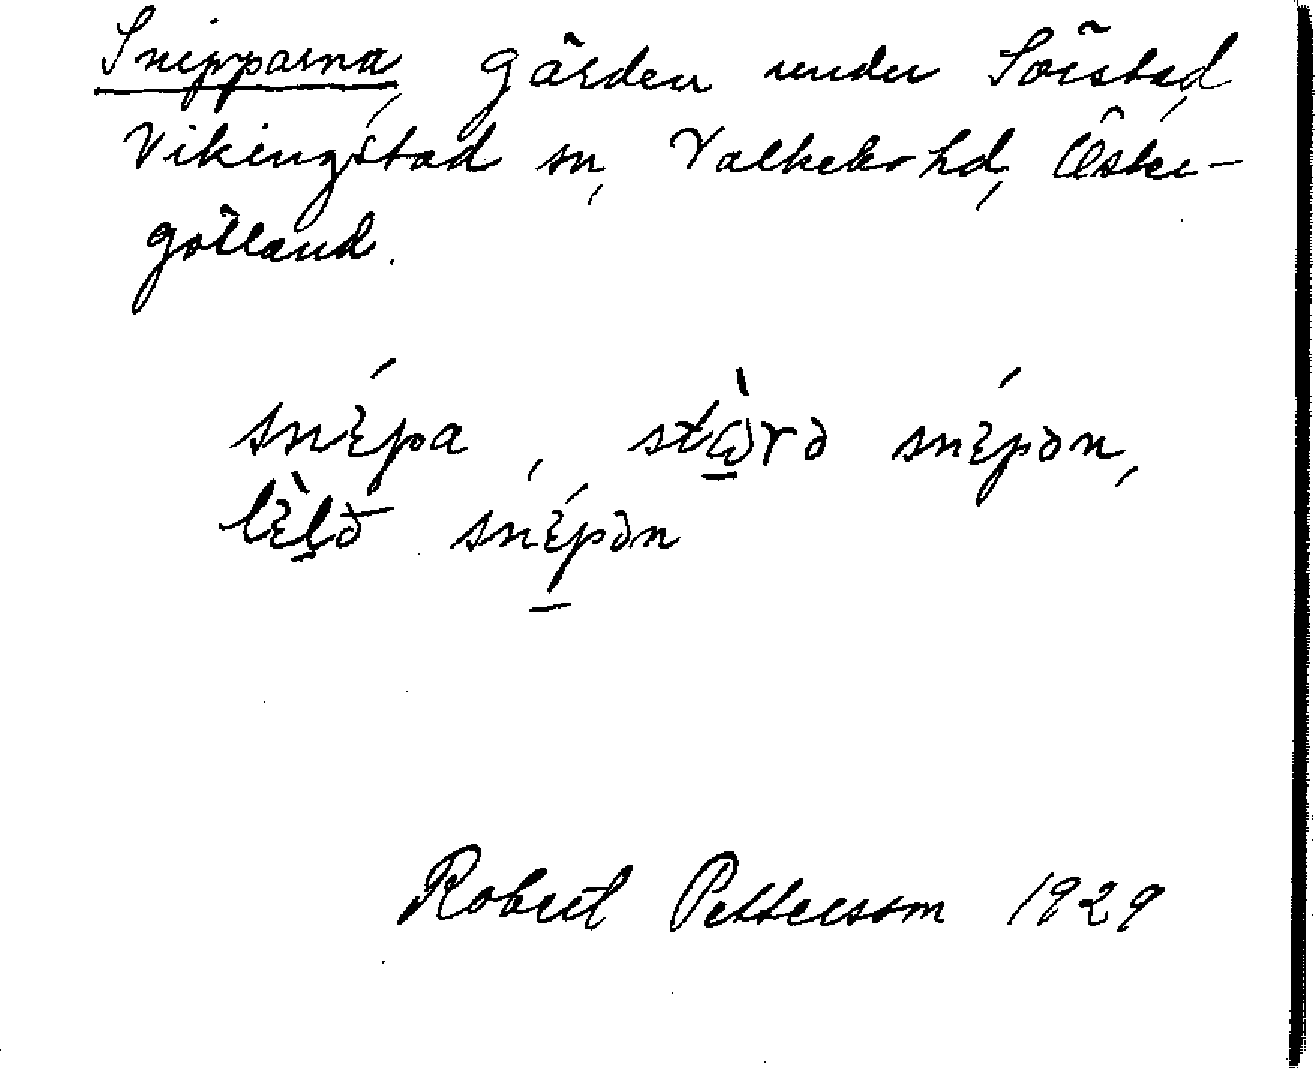 Snipparna, Gärden under Sörstad,
Vikingstad sn, Valkebo hd, Öster-
götland.
snépa, stὼ̲rə snépən,
lɛ̀ḷə snépən
Robert Pettersson 1929